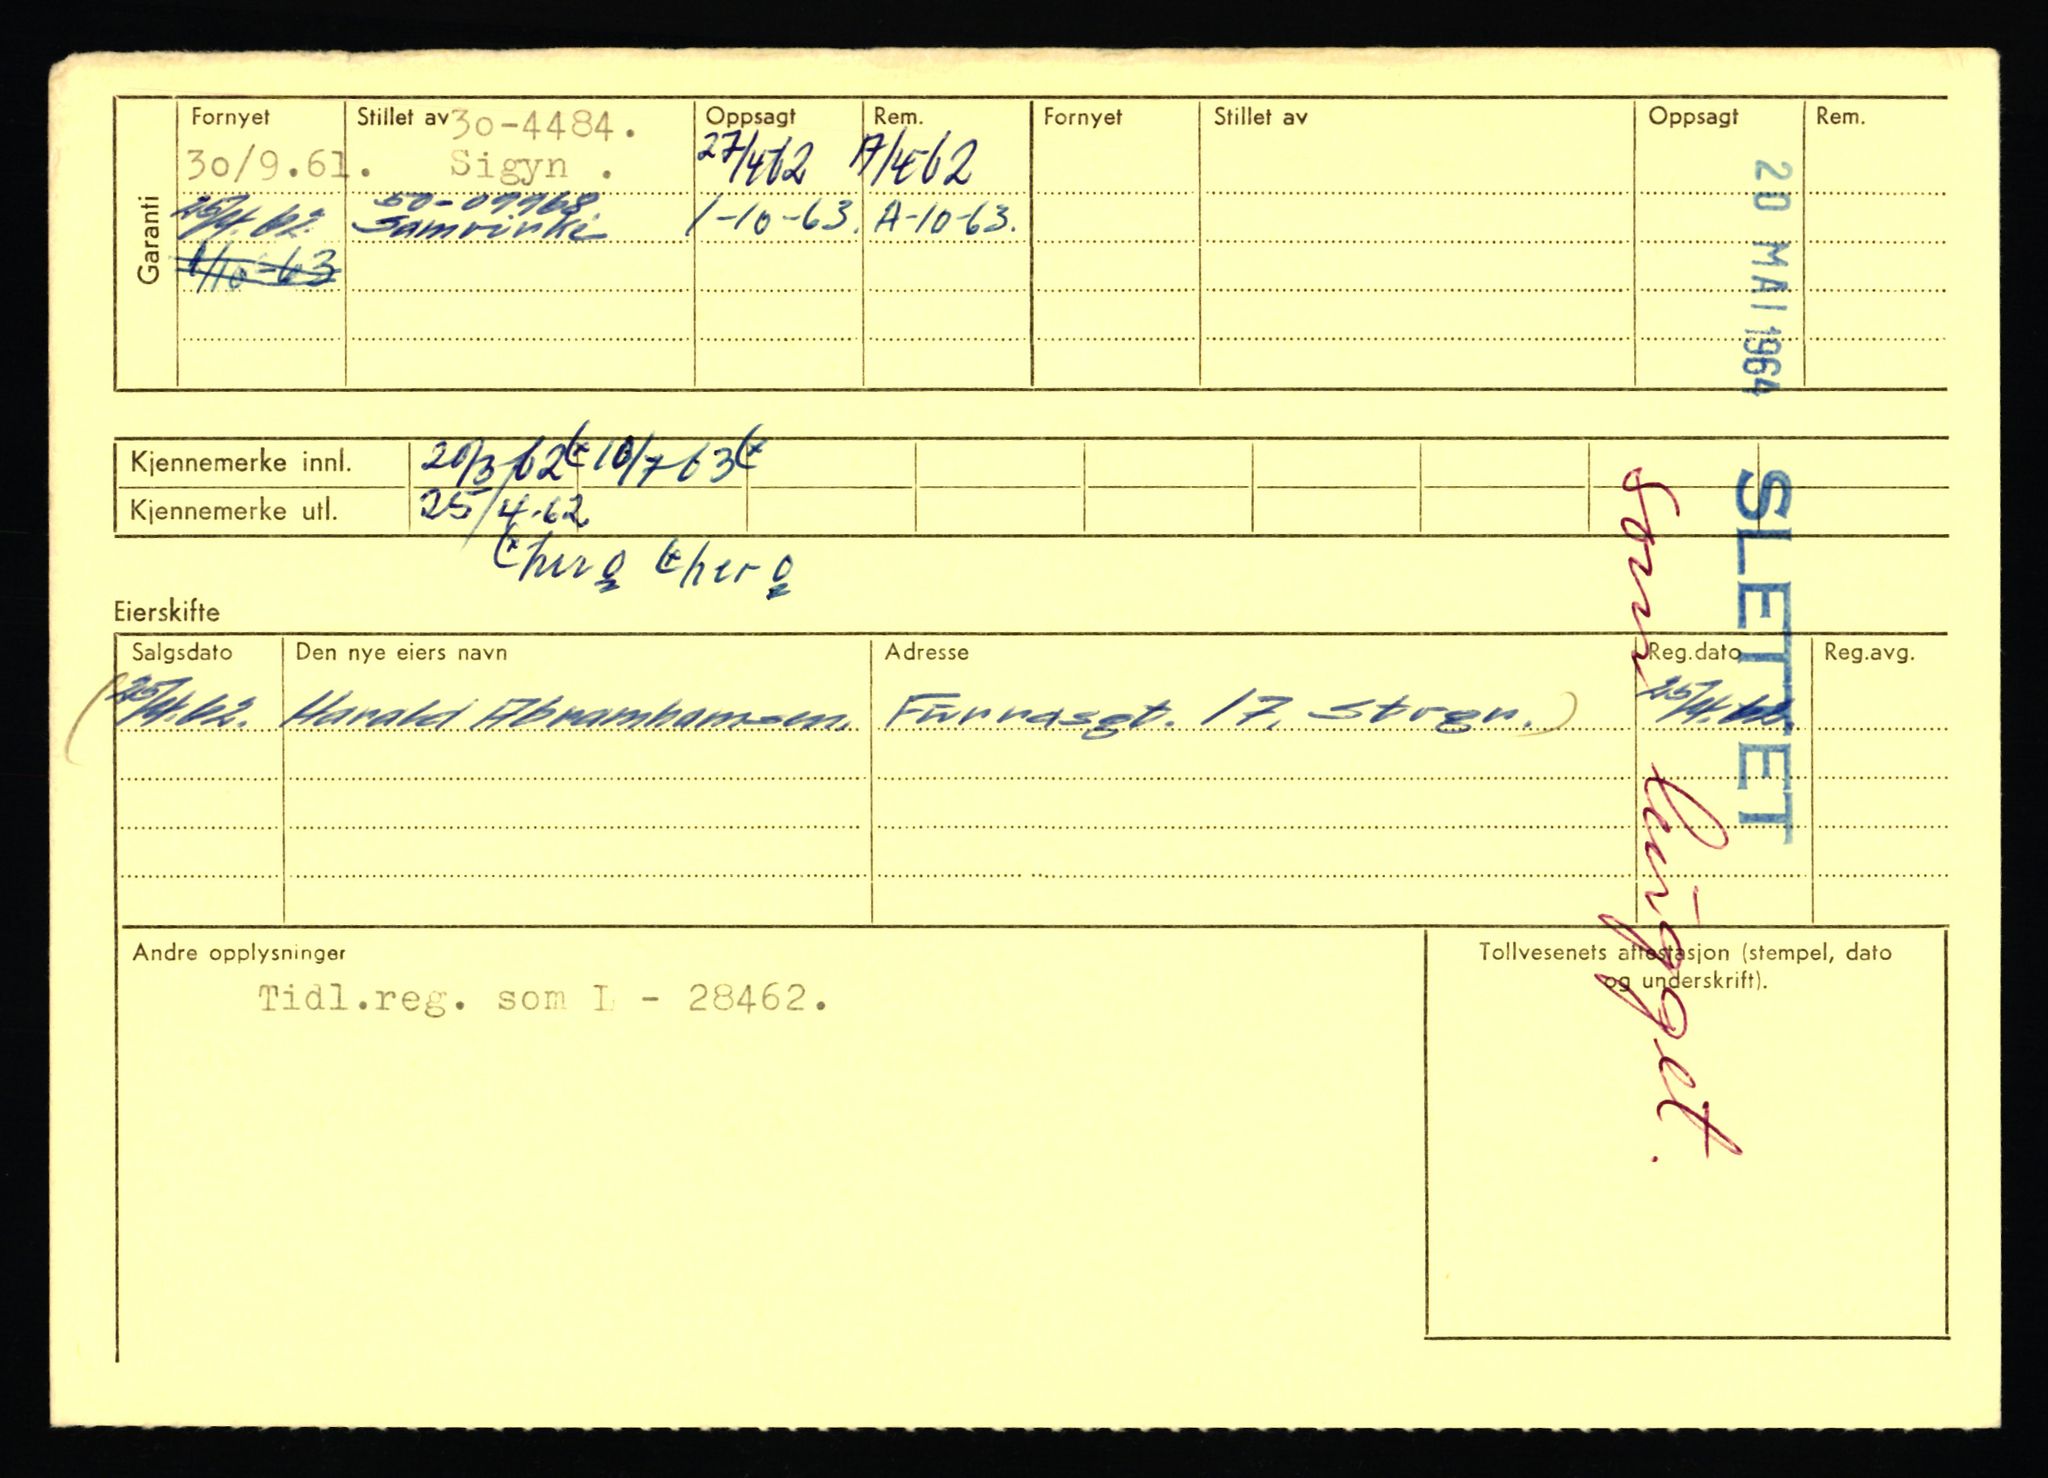 Garanti
Fornyet Stillet av 3o-4484. Oppsagt Rem. Fornyet Stillet av Oppsagt Rem.
3o/9.61. Sigyn . 27/4 62 62
25/4.62. 50-09968 Samvirke 1-10-63. A-10-63.
1/10-63
20 MAI 1964
Kjennemerke innl. 20/3 62 10/7 63
Kjennemerke utl. 25/4.62
SLETTET
Som hugget.
Eierskifte
Salgsdato Den nye eiers navn Adresse Reg.dato Reg.avg.
(25/4.62. Harald Abramhamsen. Furrasgt. 17, Stvgr.) 25/4.62.
Andre opplysninger
Tidl.reg. som L - 28462.
Tollvesenets attestasjon (stempel, dato
og underskrift).